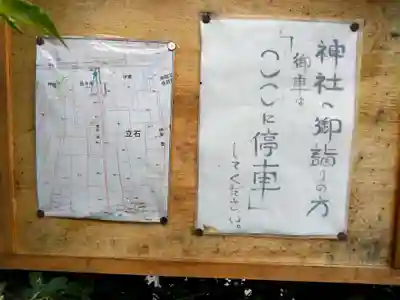 神社へ御詣りの方
「御車は
ココに停車」
してください。
立石